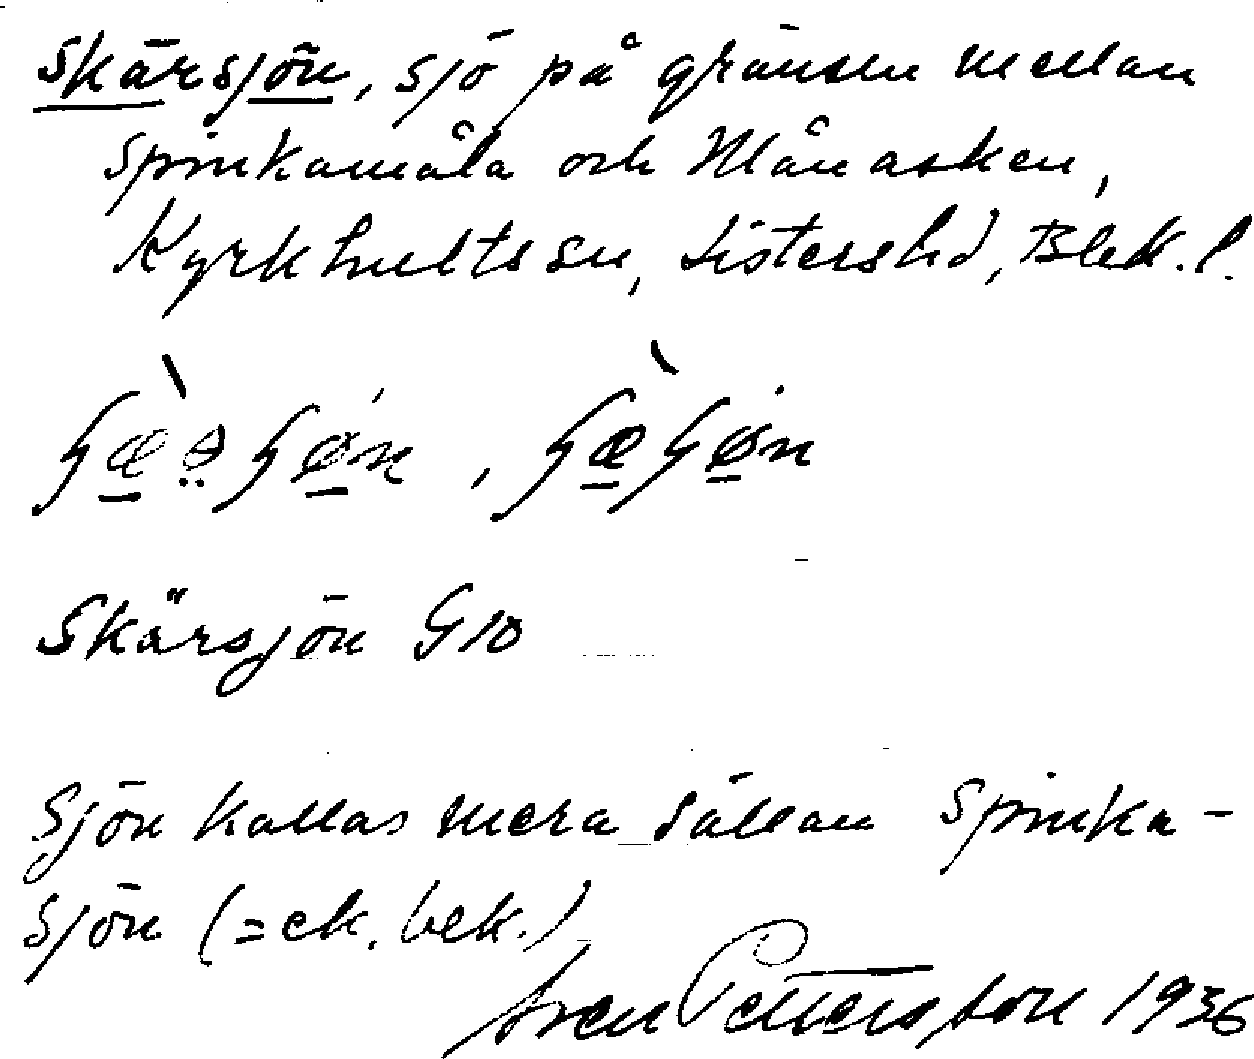 Skärsjön, sjö på gränsen mellan
Spinkamåla och Månasken,
Kyrkhults sn, Listers hd, Blek. l.
Skärsjön G10
Sjön kallas mera sällan Spinka-
sjön (= ek. bek.)
Sven Pettersson 1936